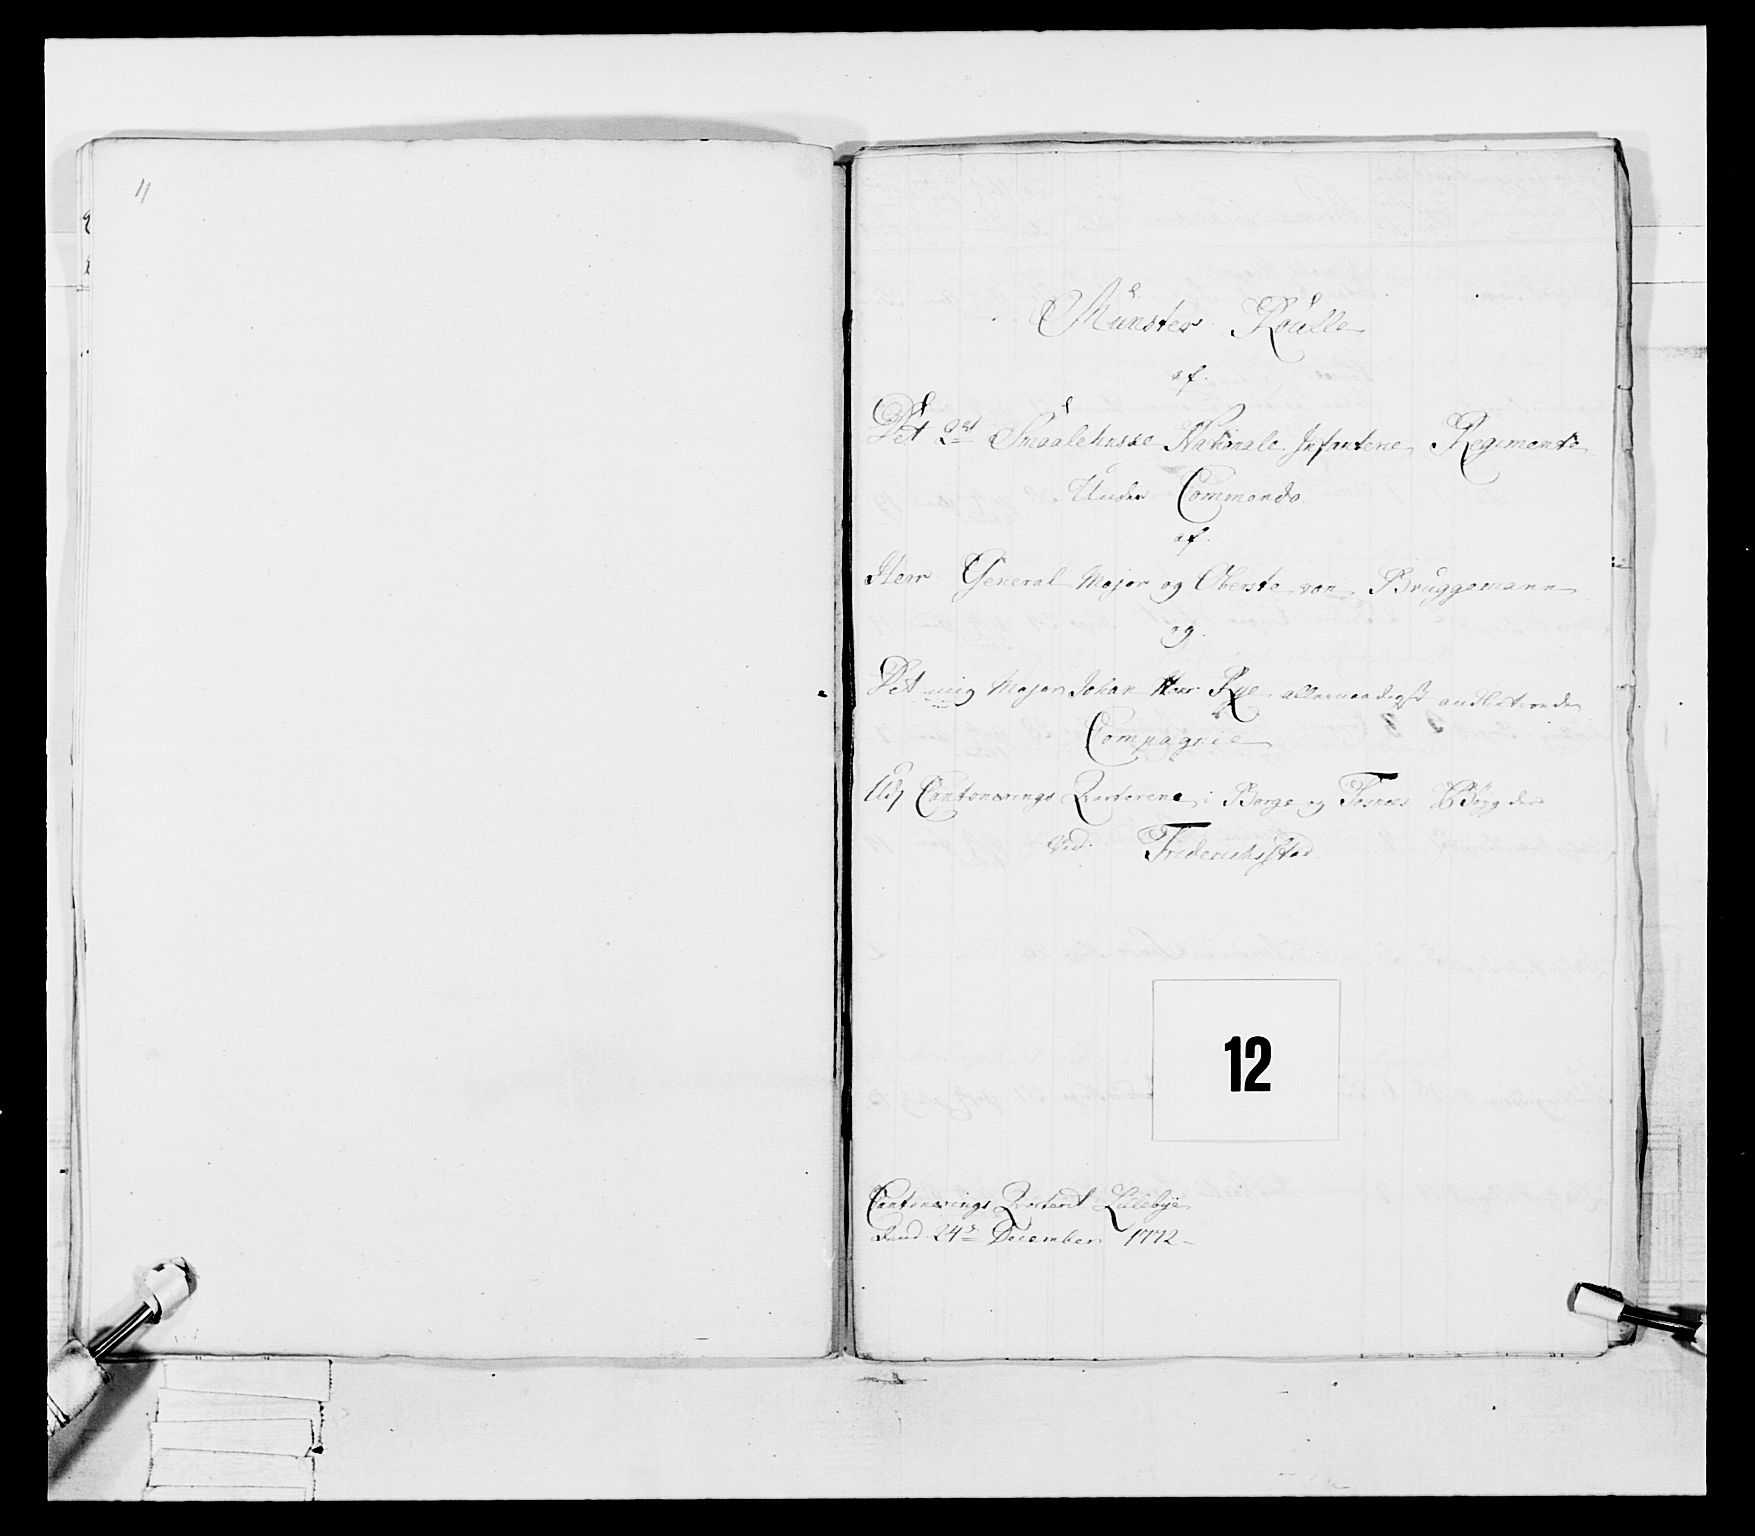 11
Münster Roulle
af.
Det 2det Smaalehnske Nationale Infanterie Regimente
Under Commando
af.
Herr General Major og Oberste von Bruggemann
og.
Det mig Major Johan Rye allernaadigst andbetroede
Compagnie
Udj Cantonerings Qvarterene i Borge og Tosnæs Bøygder
ved Friderichsstad
12
Cantonerings Qvarteret Lillebye
dend 24de December 1772